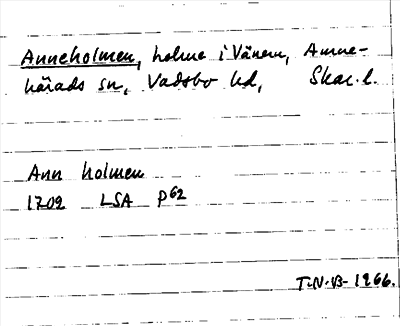 Anneholmen, holme i Vänern, Amne-
härads sn, Vadsbo hd, Skar. l.
Ann holmen
1709 LSA P62
T-N-B- 1966.